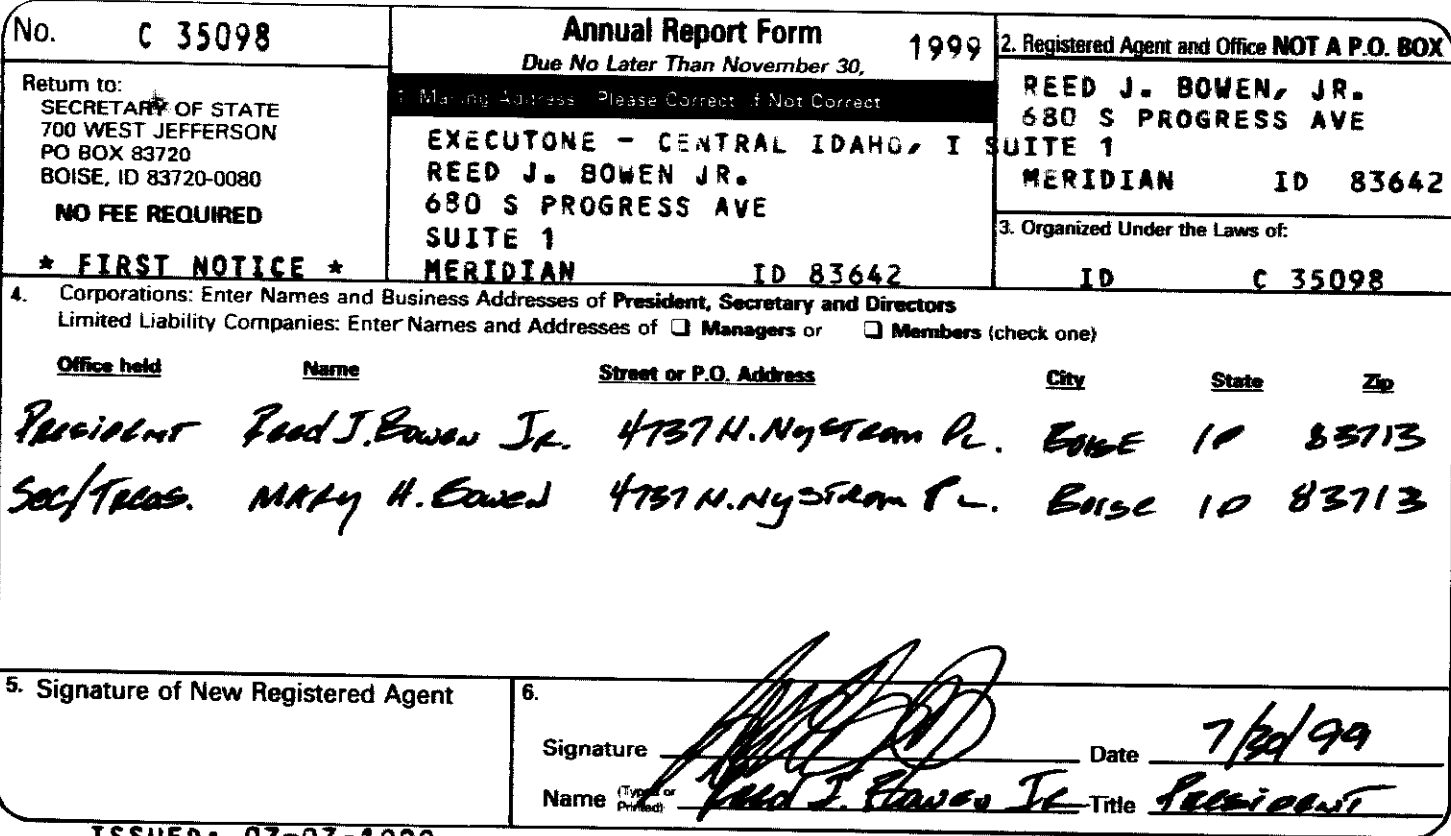 No. C 35098
Return to:
SECRETARY OF STATE
700 WEST JEFFERSON
PO BOX 83720
BOISE, ID 83720-0080
NO FEE REQUIRED
* FIRST NOTICE *
Annual Report Form 1999
Due No Later Than November 30,
1. Mailing Address Please Correct If Not Correct
EXECUTONE - CENTRAL IDAHO, I
REED J. BOWEN JR.
680 S PROGRESS AVE
SUITE 1
MERIDIAN ID 83642
2. Registered Agent and Office NOT A P.O. BOX
REED J. BOWEN, JR.
680 S PROGRESS AVE
SUITE 1
MERIDIAN ID 83642
3. Organized Under the Laws of:
ID C 35098
4. Corporations: Enter Names and Business Addresses of President, Secretary and Directors
Limited Liability Companies: Enter Names and Addresses of ❑ Managers or ❑ Members (check one)
Office held Name Street or P.O. Address City State Zip
President Reed J. Bowen Jr. 4737 N. Nystrom Pl. Boise ID 83713
Sec/Treas. Mary H. Bowen 4737 N. Nystrom Pl. Boise ID 83713
5. Signature of New Registered Agent
6.
Signature Date 7/30/99
Name (Typed or Printed) Reed J. Bowen Jr Title President
ISSUED: 07-03-1999